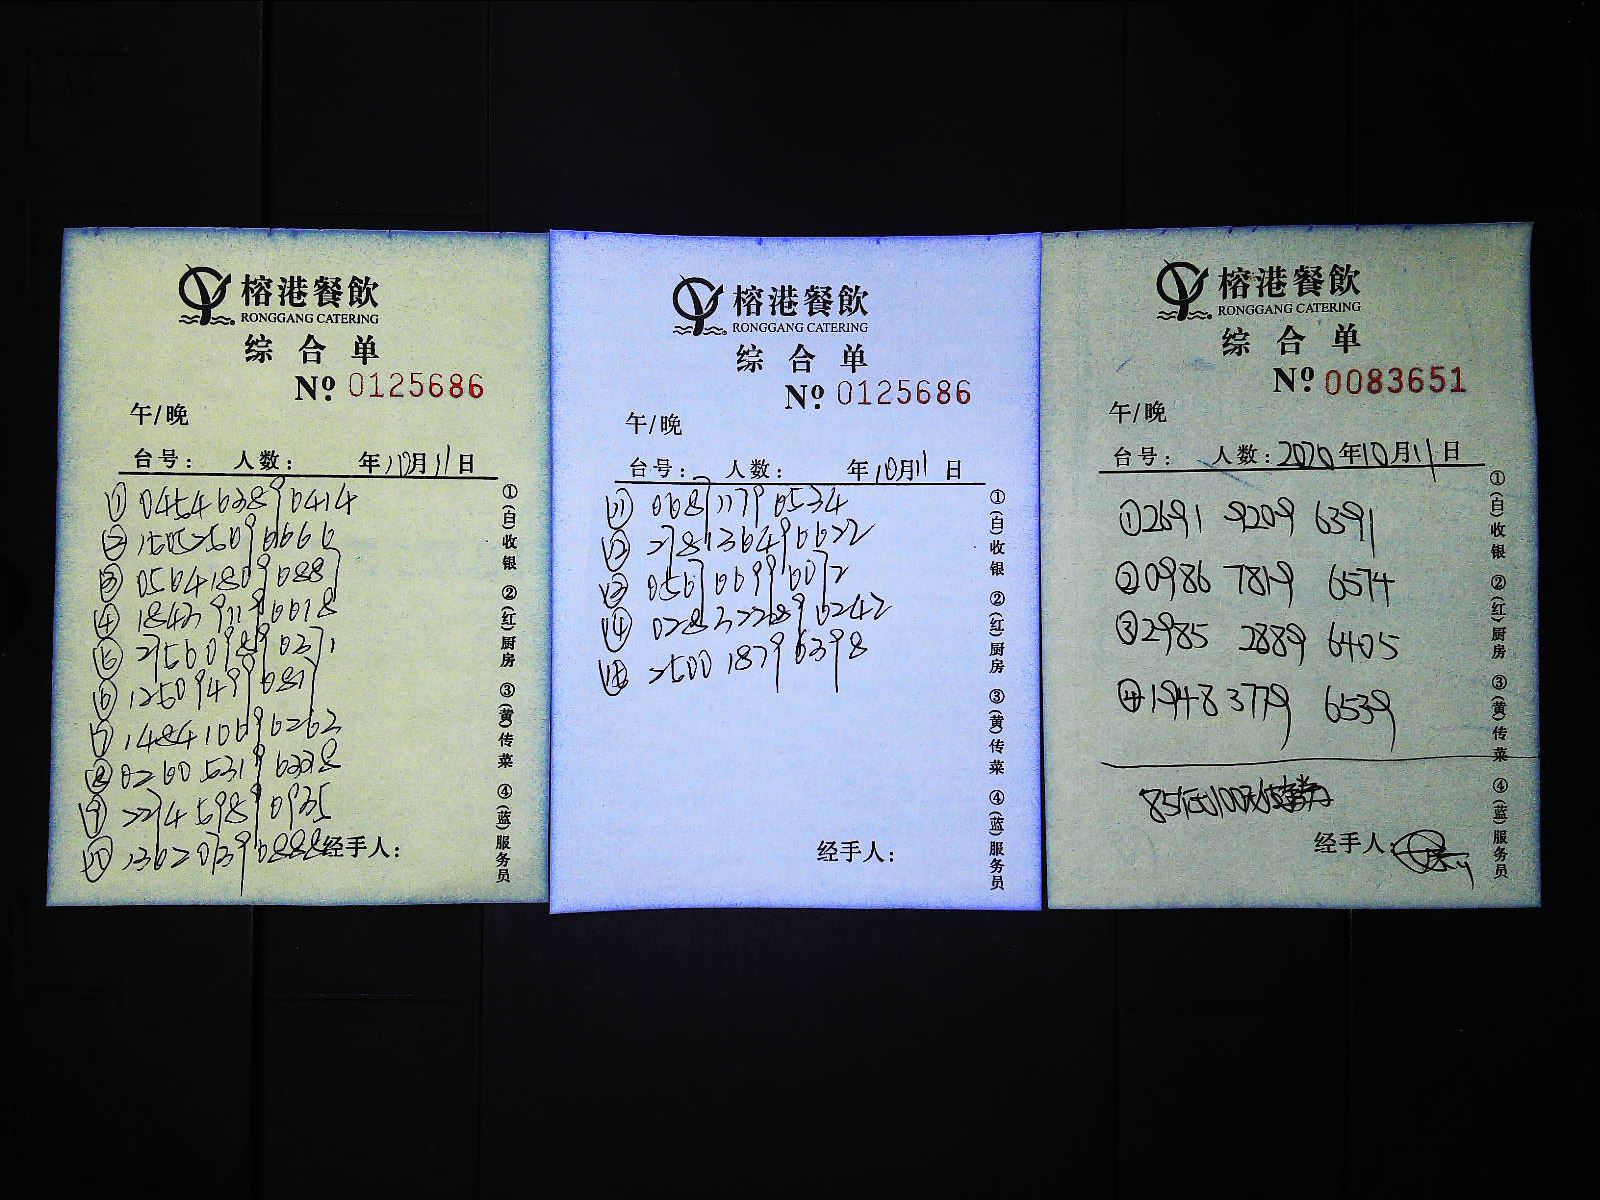 榕港餐飲
RONGGANG CATERING
综合单
Nº 0125686
午/晚
台号： 人数： 年10月11日
① 0454 6389 0414
②
③ 0564 1809 0887
④
⑤
⑥ 1250 9499 0817
⑦ 1484 1069 6262
⑧ 0260 5319 6338
⑨ 2274 5989 0935
⑩ 1362 0739 6888
经手人：
①(白)收银 ②(红)厨房 ③(黄)传菜 ④(蓝)服务员
榕港餐飲
RONGGANG CATERING
综合单
Nº 0125686
午/晚
台号： 人数： 年10月11日
⑪ 0687 1179 0534
⑫ 2781 3649 6622
⑬ 0567 0699 6072
⑭ 0283 2289 6242
⑮ 2500 1879 6398
经手人：
①(白)收银 ②(红)厨房 ③(黄)传菜 ④(蓝)服务员
榕港餐飲
RONGGANG CATERING
综合单
Nº 0083651
午/晚
台号： 人数：2020年10月11日
① 2691 9209 6391
② 0986 7819 6574
③ 2985 2889 6405
④ 1948 3779 6539
经手人：
①(白)收银 ②(红)厨房 ③(黄)传菜 ④(蓝)服务员